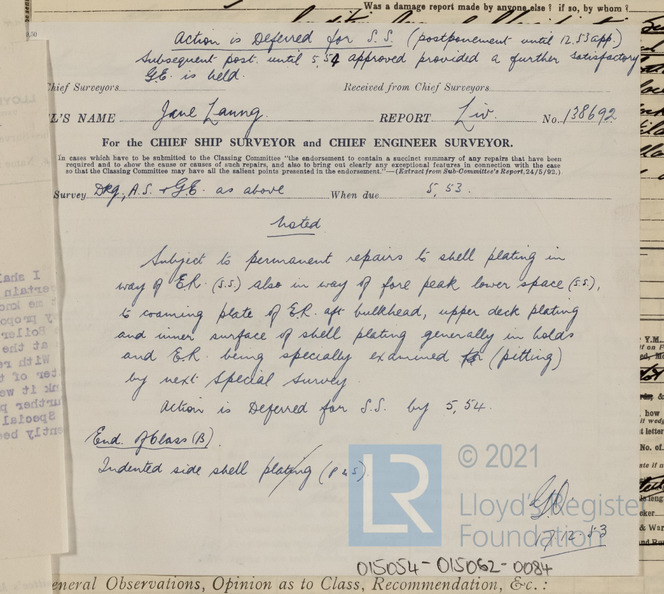 Was a damage report made by anyone else? if so, by whom?
Action is Deferred for S.S. (postponement until 12.53 app)
Subsequent post. until 5,54 approved provided a further satisfactory
G.E. is held.
Chief Surveyors
Received from Chief Surveyors
L'S NAME Jane REPORT Liv. No. 138692
For the CHIEF SHIP SURVEYOR and CHIEF ENGINEER SURVEYOR.
In cases which have to be submitted to the Classing Committee "the endorsement to contain a succinct summary of any repairs that have been
required and to show the cause or causes of such repairs, and also to bring out clearly any exceptional features in connection with the case
so that the Classing Committee may have all the salient points presented in the endorsement."—(Extract from Sub-Committee's Report, 24/5/92.)
Survey Dkg, A.S. & G.E. as above When due 5,53.
Noted
Subject to permanent repairs to shell plating in
way of E.R. (S.S.) also in way of fore peak lower space (S.S.),
to coaming plate of E.R. aft bulkhead, upper deck plating
and inner surface of shell plating generally in holds
and E.R. being specially examined for (pitting)
by next Special Survey.
Action is Deferred for S.S. by 5,54.
End. of Class (B).
Indented side shell plating (P & S)
© 2021
LR
Lloyd's Register
Foundation
17 12 53
015054-015062-0084
eneral Observations, Opinion as to Class, Recommendation, &c.: